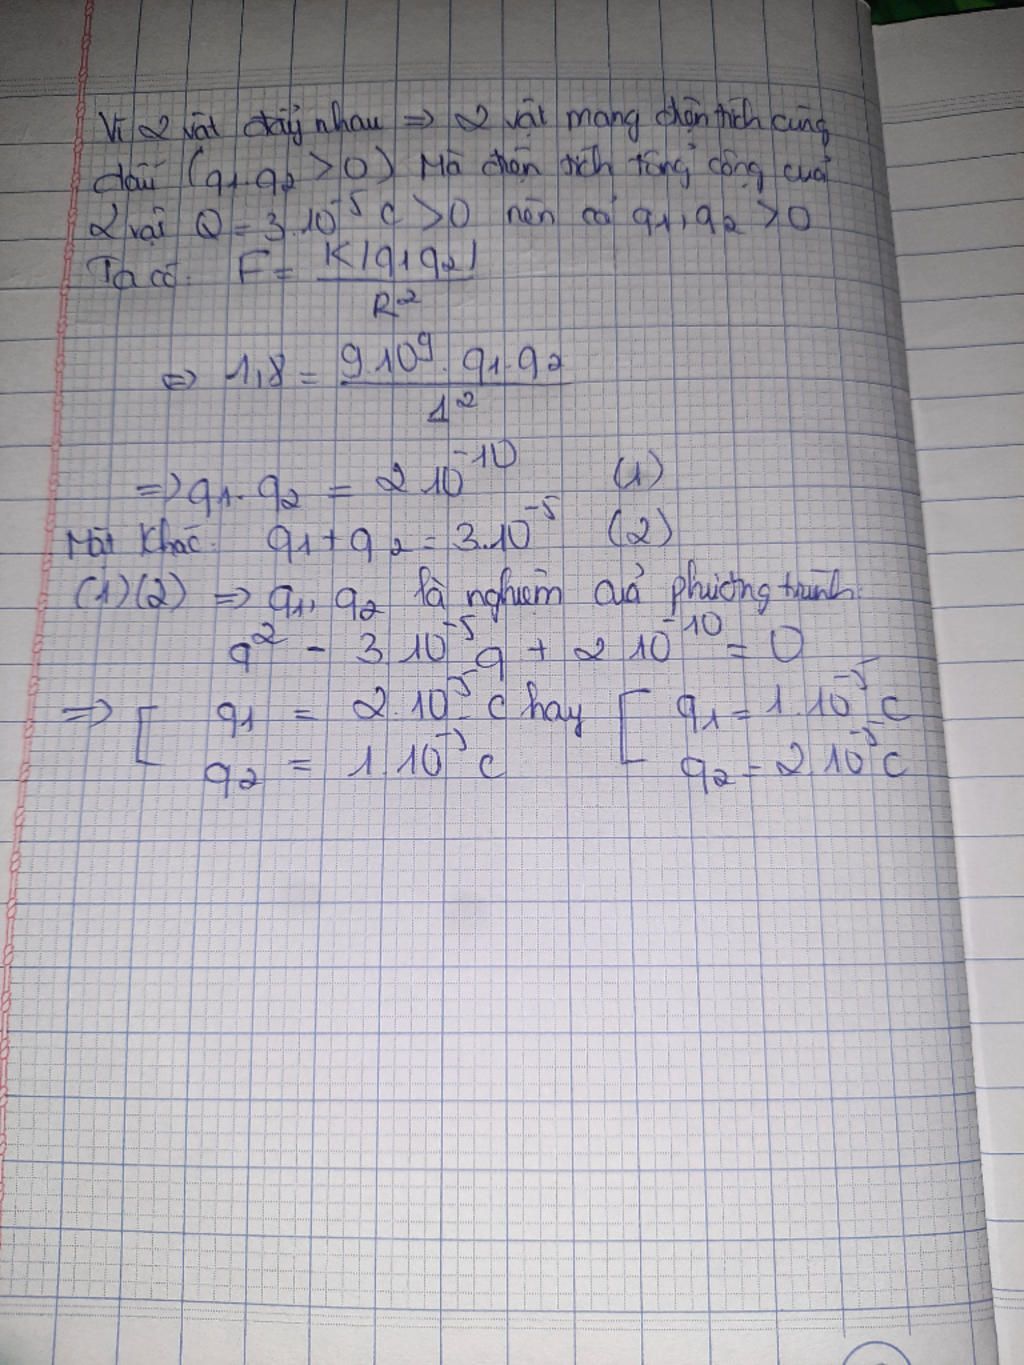 Vì 2 vật đẩy nhau => 2 vật mang điện tích cùng
dấu (q1.q2 > 0) Mà điện tích tổng cộng của
2 vật Q = 3.10^-5 C > 0 nên cả q1, q2 > 0
Ta có: F = K|q1q2| / R^2
=> 1,8 = 9.10^9 . q1.q2 / 1^2
=> q1.q2 = 2.10^-10 (1)
Mặt khác: q1 + q2 = 3.10^-5 (2)
(1)(2) => q1, q2 là nghiệm của phương trình:
q^2 - 3.10^-5 q + 2.10^-10 = 0
=> [ q1 = 2.10^-5 C hay [ q1 = 1.10^-5 C
q2 = 1.10^-5 C q2 = 2.10^-5 C